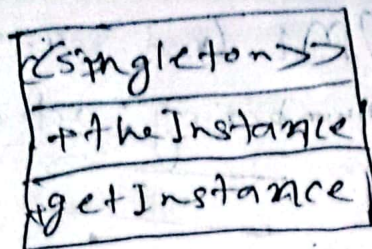 <<singleton>>
+theInstance
+getInstance